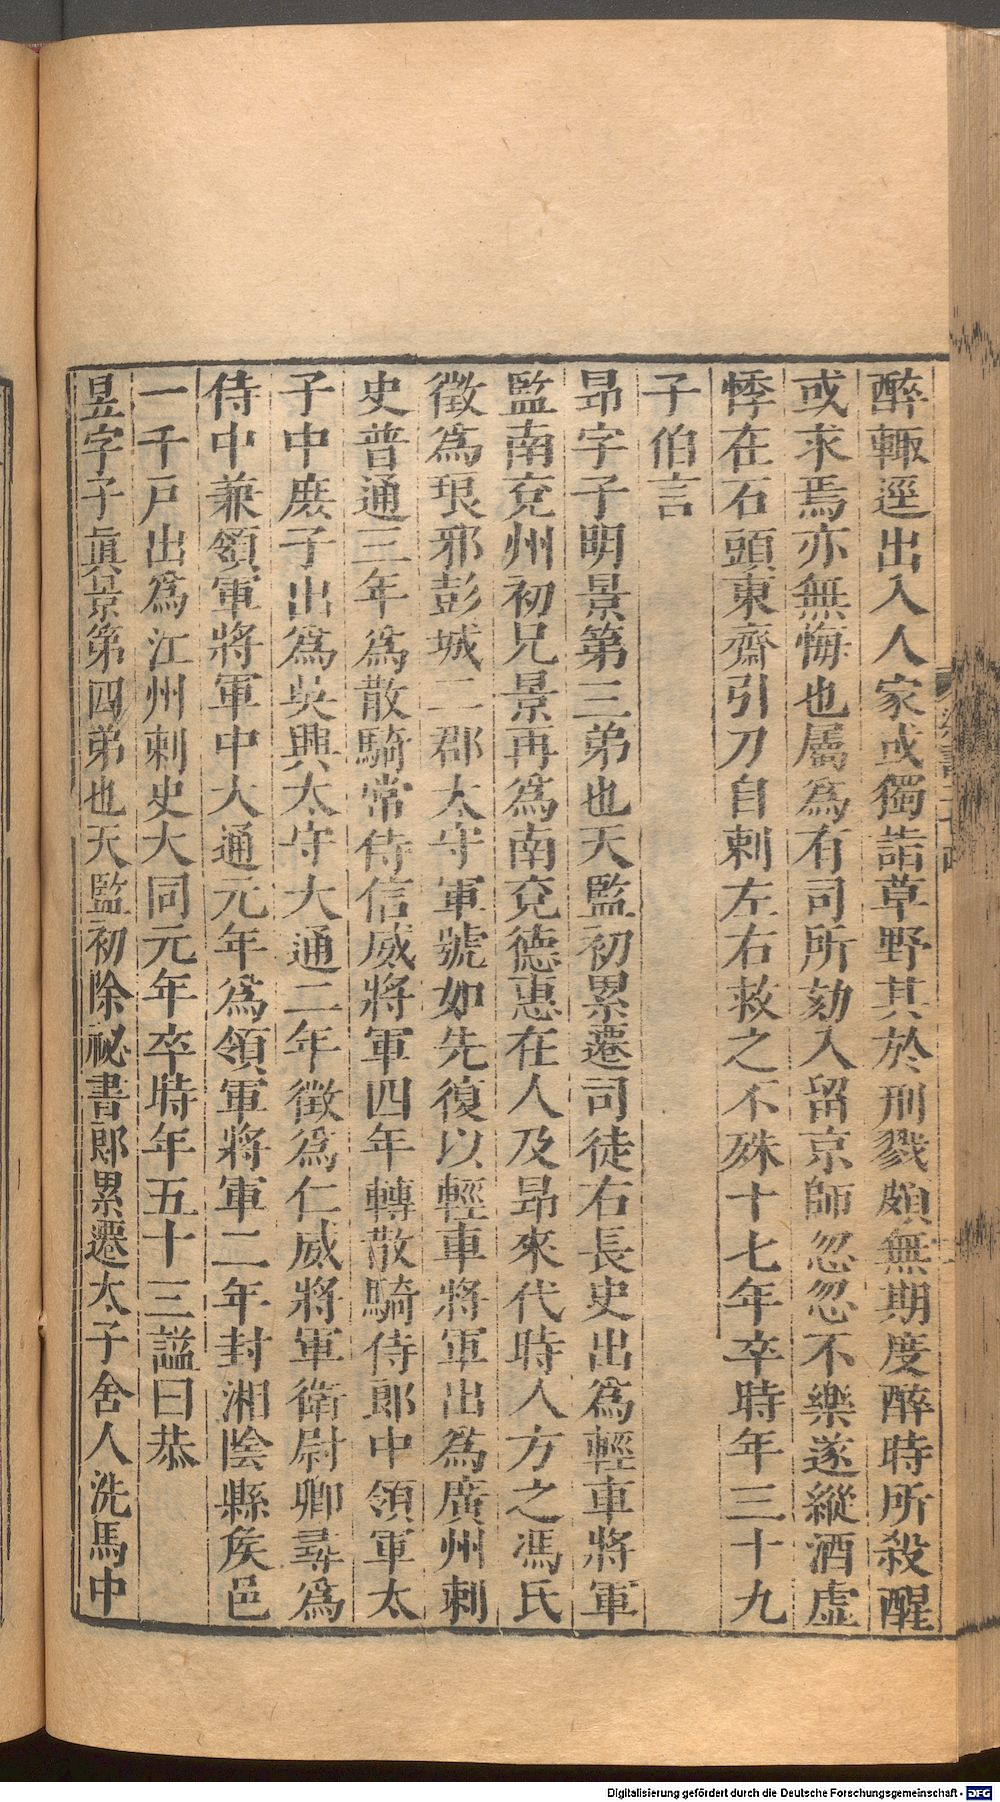 醉輒逕出入人家或獨詣草野其於刑戮頗無期度醉時所殺醒
或求焉亦無悔也屬爲有司所劾入留京師忽忽不樂遂縱酒虛
悸在石頭東齋引刀自刺左右救之不殊十七年卒時年三十九
子伯言
昂字子明景第三弟也天監初累遷司徒右長史出爲輕車將軍
監南兗州初兄景再爲南兗德惠在人及昂來代時人方之馮氏
徵爲琅邪彭城二郡太守軍號如先復以輕車將軍出爲廣州刺
史普通三年爲散騎常侍信威將軍四年轉散騎侍郎中領軍太
子中庶子出爲吳興太守大通二年徵爲仁威將軍衛尉卿尋爲
侍中兼領軍將軍中大通元年爲領軍將軍二年封湘陰縣侯邑
一千戸出爲江州刺史大同元年卒時年五十三諡曰恭
昱字子眞景第四弟也天監初除祕書郎累遷太子舍人洗馬中
Digitalisierung gefördert durch die Deutsche Forschungsgemeinschaft - DFG